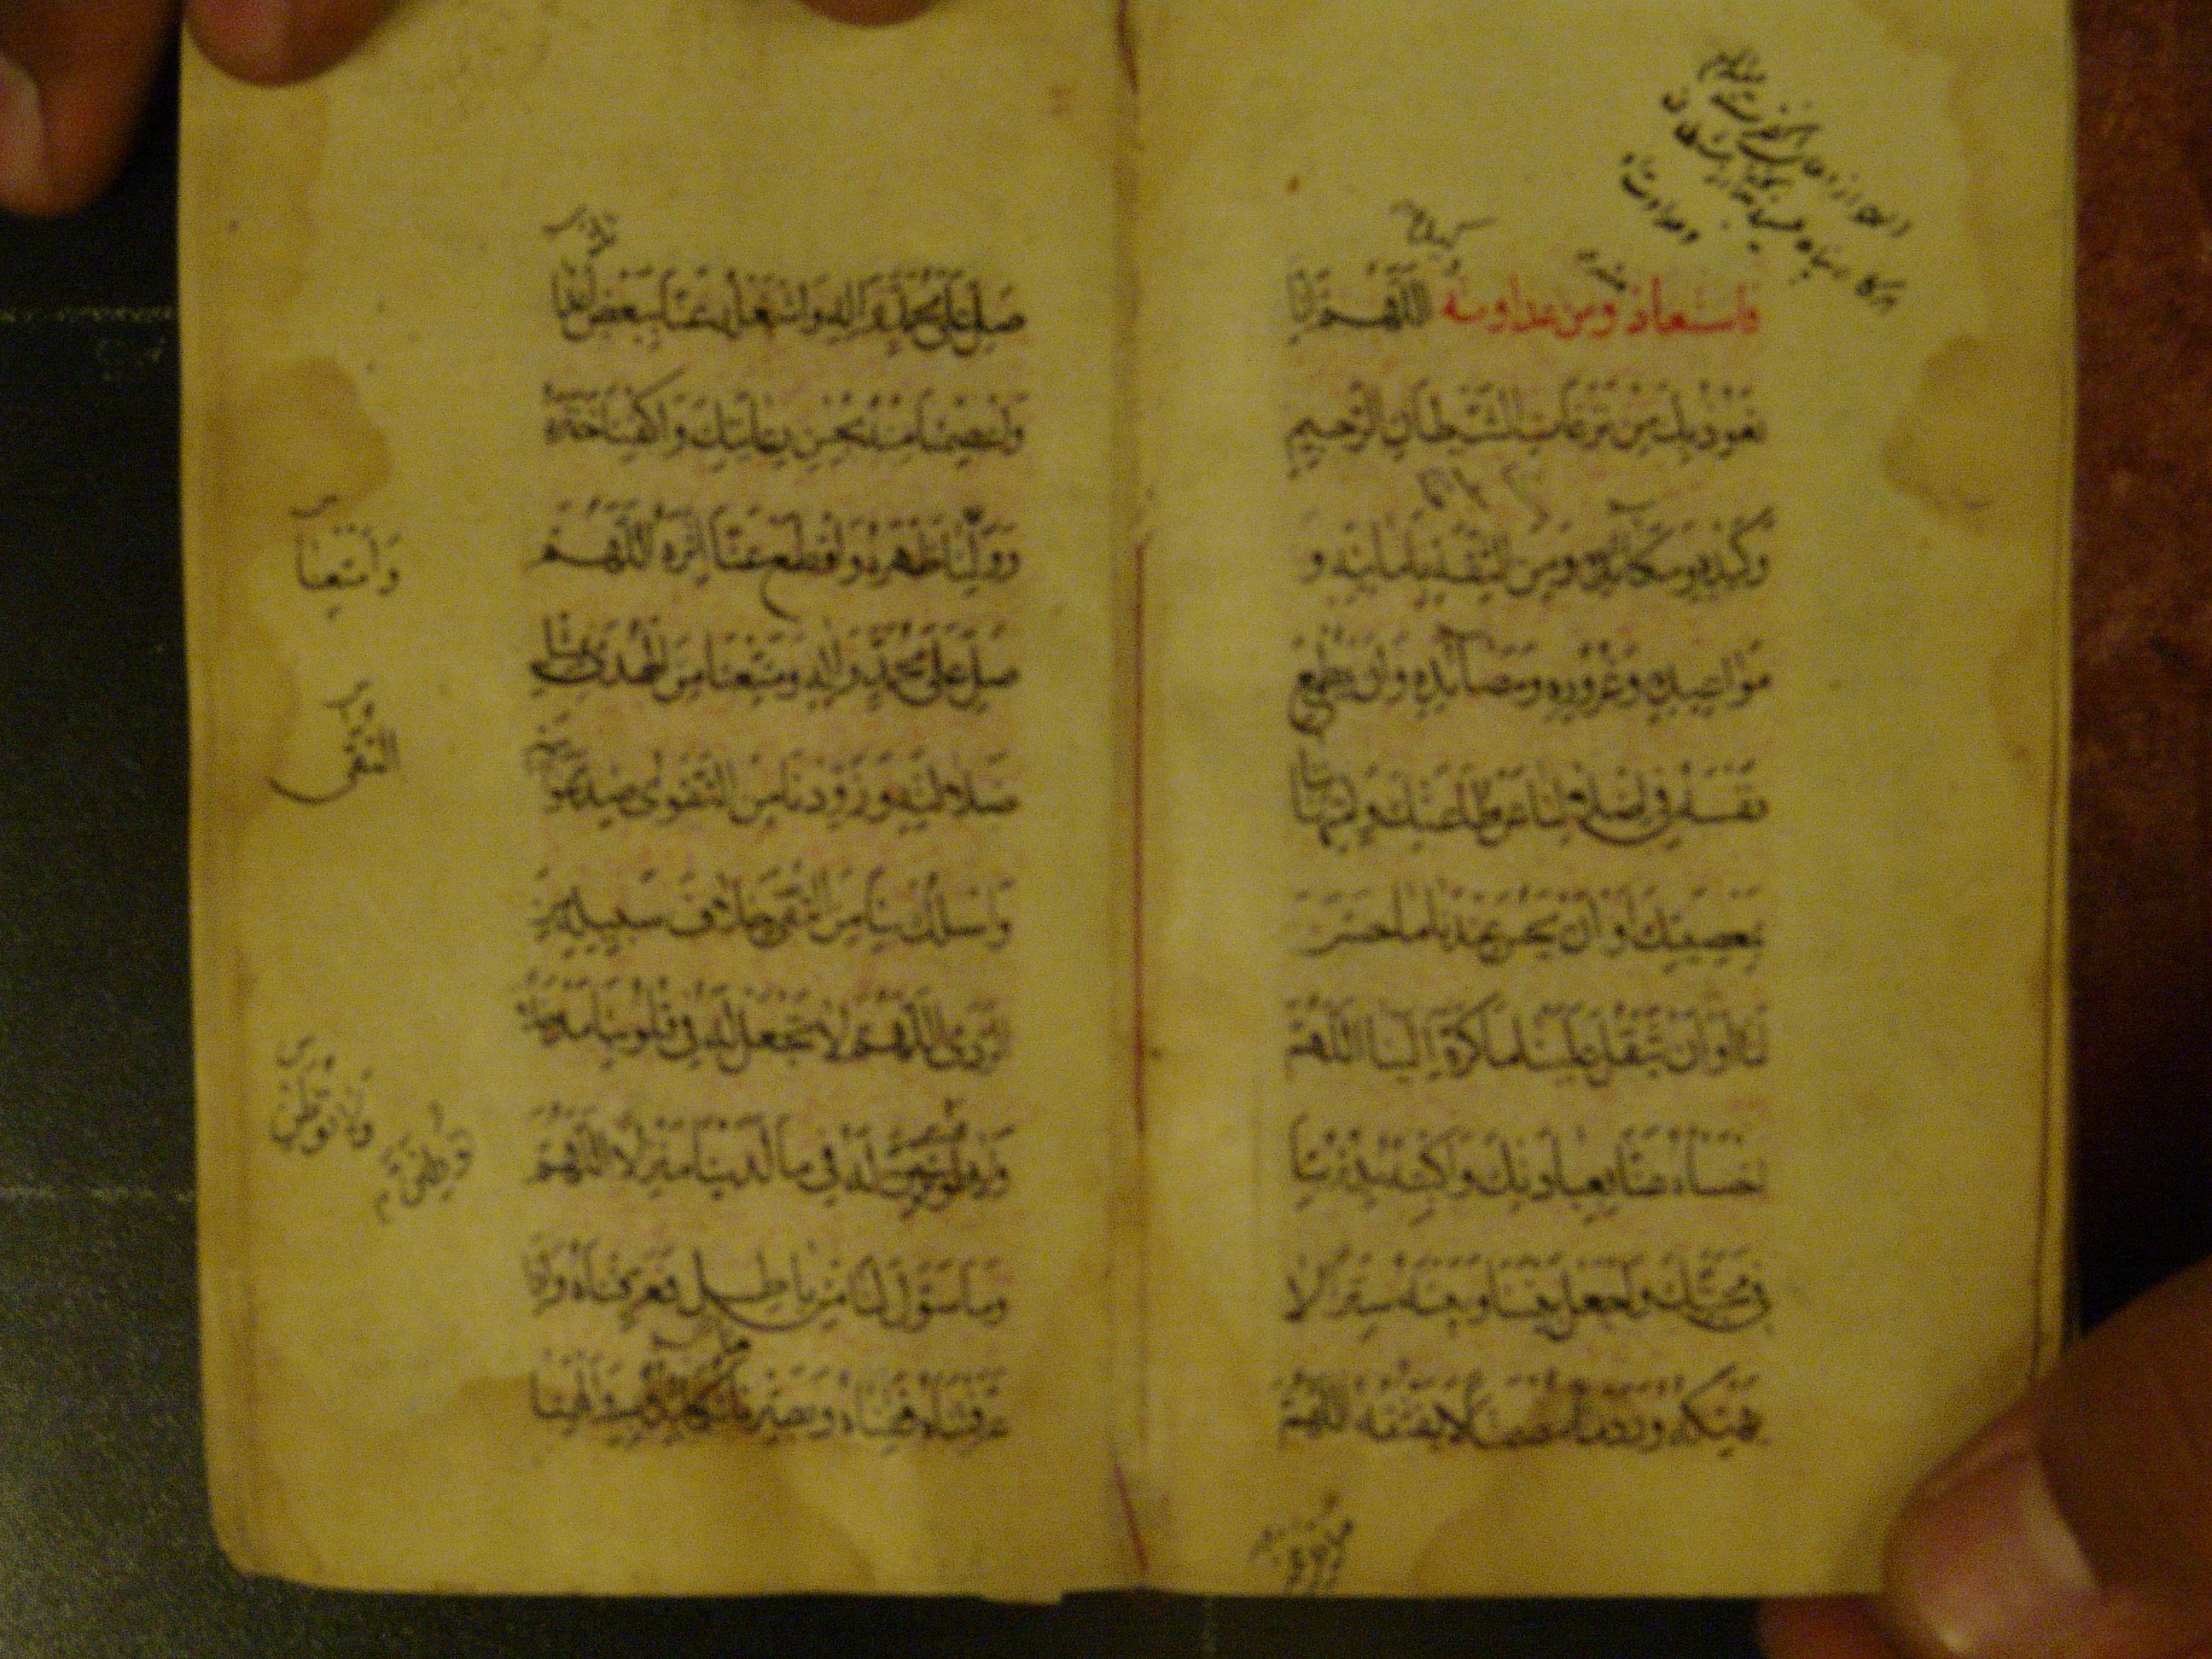 فاستعاذ ومن عداوته اللهم انا
نعوذ بك من نزغات الشيطان الرجيم
وكيده ومكائده ومن الثقة بامانيه و
مواعيده وغروره ومصائده وان يطمع
نفسه في اضلالنا عن طاعتك وامتهاننا
بمعصيتك او ان يحسن عندنا ما حسن
لنا او ان يثقل علينا ما كره الينا اللهم
اخساه عنا بعبادتك واكبته بدؤبنا
في محبتك واجعل بيننا وبينه سترا لا
يهتكه وردما مصمتا لا يفتقه اللهم
صل على محمد واله واشغله عنا ببعض اعدا
واعصمنا منه بحسن رعايتك واكفنا ختره
وولنا ظهره واقطع عنا اثره اللهم
صل على محمد واله ومتعنا من الهدى بمثل
ضلالته وزودنا من التقوى ضد غوايته
واسلك بنا من التقى خلاف سبيله من
الردى اللهم لا تجعل له في قلوبنا مدخلا
ولا له في ما لدينا منزلا اللهم
وما سول لنا من باطل فعرفناه واذا
عرفتناه فقناه وبصرنا ما نكايده به والهمنا
وامتعنا
التقى
ولا توطنن